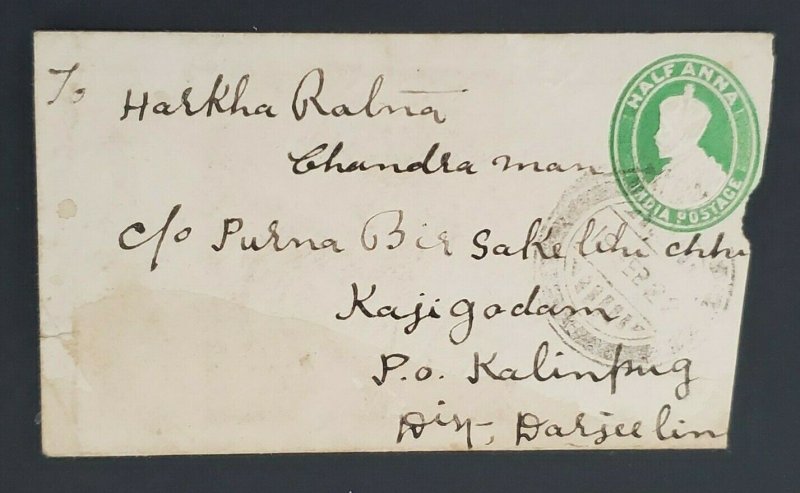 To
Harkha Ratna
Chandra man
c/o Purna Bir Sakelhi chhu
Kaji godam
P.o. Kalinpug
Dist, Darjeelin
HALF ANNA
INDIA POSTAGE